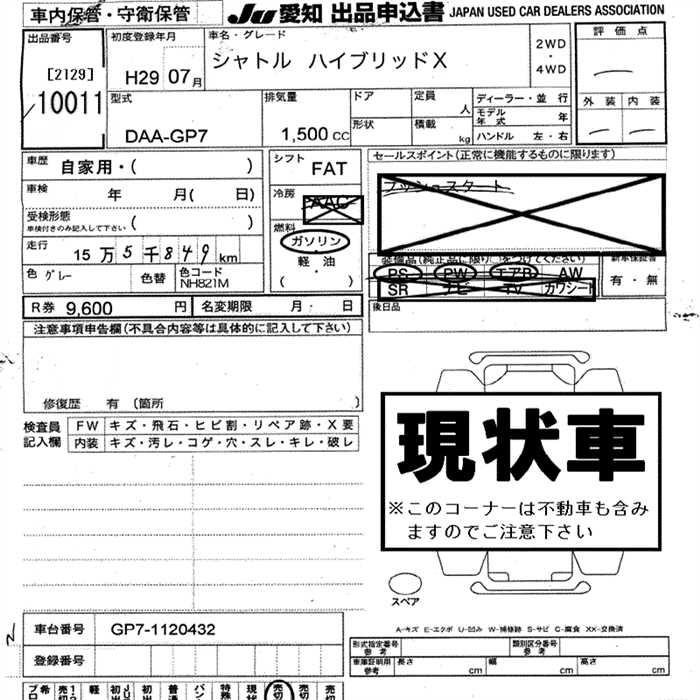 車内保管・守衛保管 JU 愛知 出品申込書 JAPAN USED CAR DEALERS ASSOCIATION
出品番号 初度登録年月 車名・グレード 2WD ・ 4WD 評価点
[2129] H29 07月 シャトル ハイブリッドX
10011
外装 内装
型式 排気量 ドア 定員 人 ディーラー・並行
モデル年式 年
DAA-GP7 1,500 CC 形状 積載 kg ハンドル 左・右
車歴 自家用・( ) シフト FAT セールスポイント(正常に機能するものに限ります)
車検 年 月( 日) 冷房 AAC プッシュスタート
受検形態 ( )
車検付きのみ記入して下さい
燃料 ガソリン
軽・油
・
( )
走行 15万5千849km
装備品(純正品に限り○をつけてください) 新車保証書
色 グレー 色替 色コード NH821M
PS PW エアB AW 有・無
SR ナビ TV カワシート
R券 9,600 円 名変期限 月・ 日
後日品
注意事項申告欄(不具合内容等は具体的に記入して下さい)
修復歴 有 〔箇所 〕
検査員記入欄 FW キズ・飛石・ヒビ割・リペア跡・X要
内装 キズ・汚レ・コゲ・穴・スレ・キレ・破レ
現状車
※このコーナーは不動車も含み
ますのでご注意下さい
スペア
A-キズ E-エクボ U-凹み W-補修跡 S-サビ C-腐食 XX-交換済
車台番号 GP7-1120432
登録番号
形式指定番号 参考 類別区分番号 参考
車庫証明用 参考 長さ cm 幅 cm 高さ cm